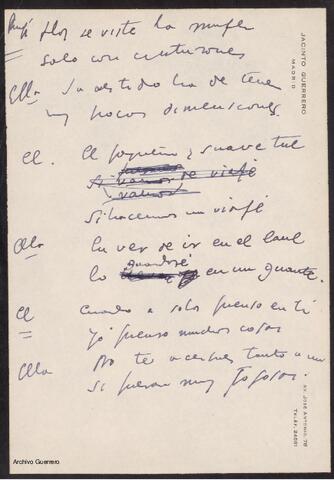 flor se viste la mujer
solo con cinturones
Ella Su vestido ha de tener
muy pocas dimensiones
El. El poquitin y suave tul
Si vamos de viaje
Si hacemos un viaje
Ella En vez de ir en el baul
lo guardré en un guante.
El Cuando a solas pienso en ti
Yo pienso muchas cosas
Ella No te acerques tanto a mi
Si fueran muy fogosas.
JACINTO GUERRERO
MADRID
AV. JOSÉ ANTONIO, 78
Archivo Guerrero